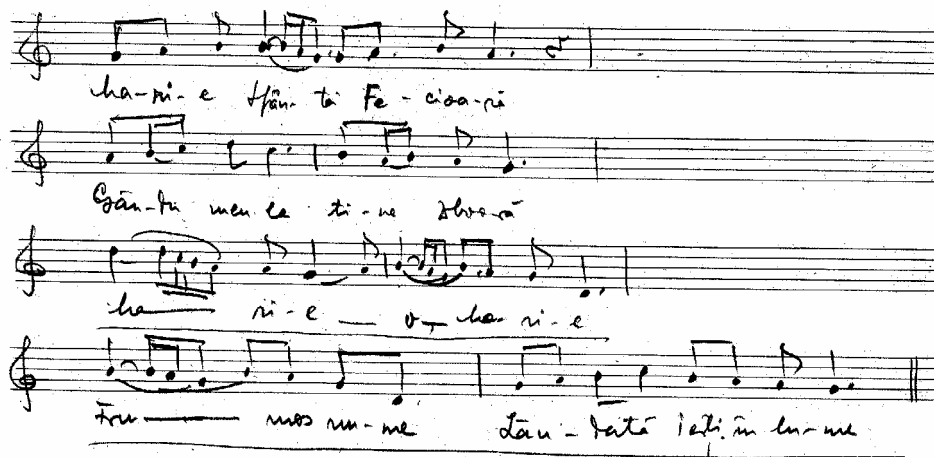 Ma-ri-e Sfân-tă Fe-cioa-ră
Gân-du meu la ti-ne zboară
Ma— ri-e — o— Ma-ri-e
Fru—— mos nu-me Lău-dată iești în lu-me